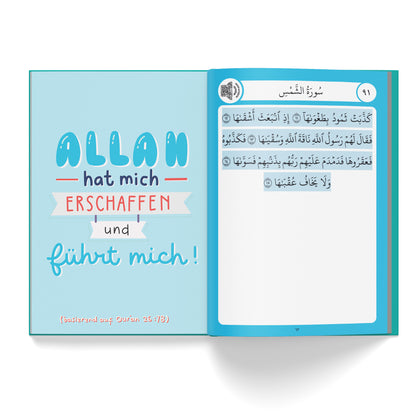 ALLAH
hat mich
ERSCHAFFEN
und
führt mich!
(basierend auf Qur'an 26:78)
سُورَةُ الشَّمْسِ
٩١
كَذَّبَتْ ثَمُودُ بِطَغْوَىٰهَا ۝١١ إِذِ ٱنۢبَعَثَ أَشْقَىٰهَا ۝١٢
فَقَالَ لَهُمْ رَسُولُ ٱللَّهِ نَاقَةَ ٱللَّهِ وَسُقْيَـٰهَا ۝١٣ فَكَذَّبُوهُ
فَعَقَرُوهَا فَدَمْدَمَ عَلَيْهِمْ رَبُّهُم بِذَنۢبِهِمْ فَسَوَّىٰهَا ۝١٤
وَلَا يَخَافُ عُقْبَـٰهَا ۝١٥